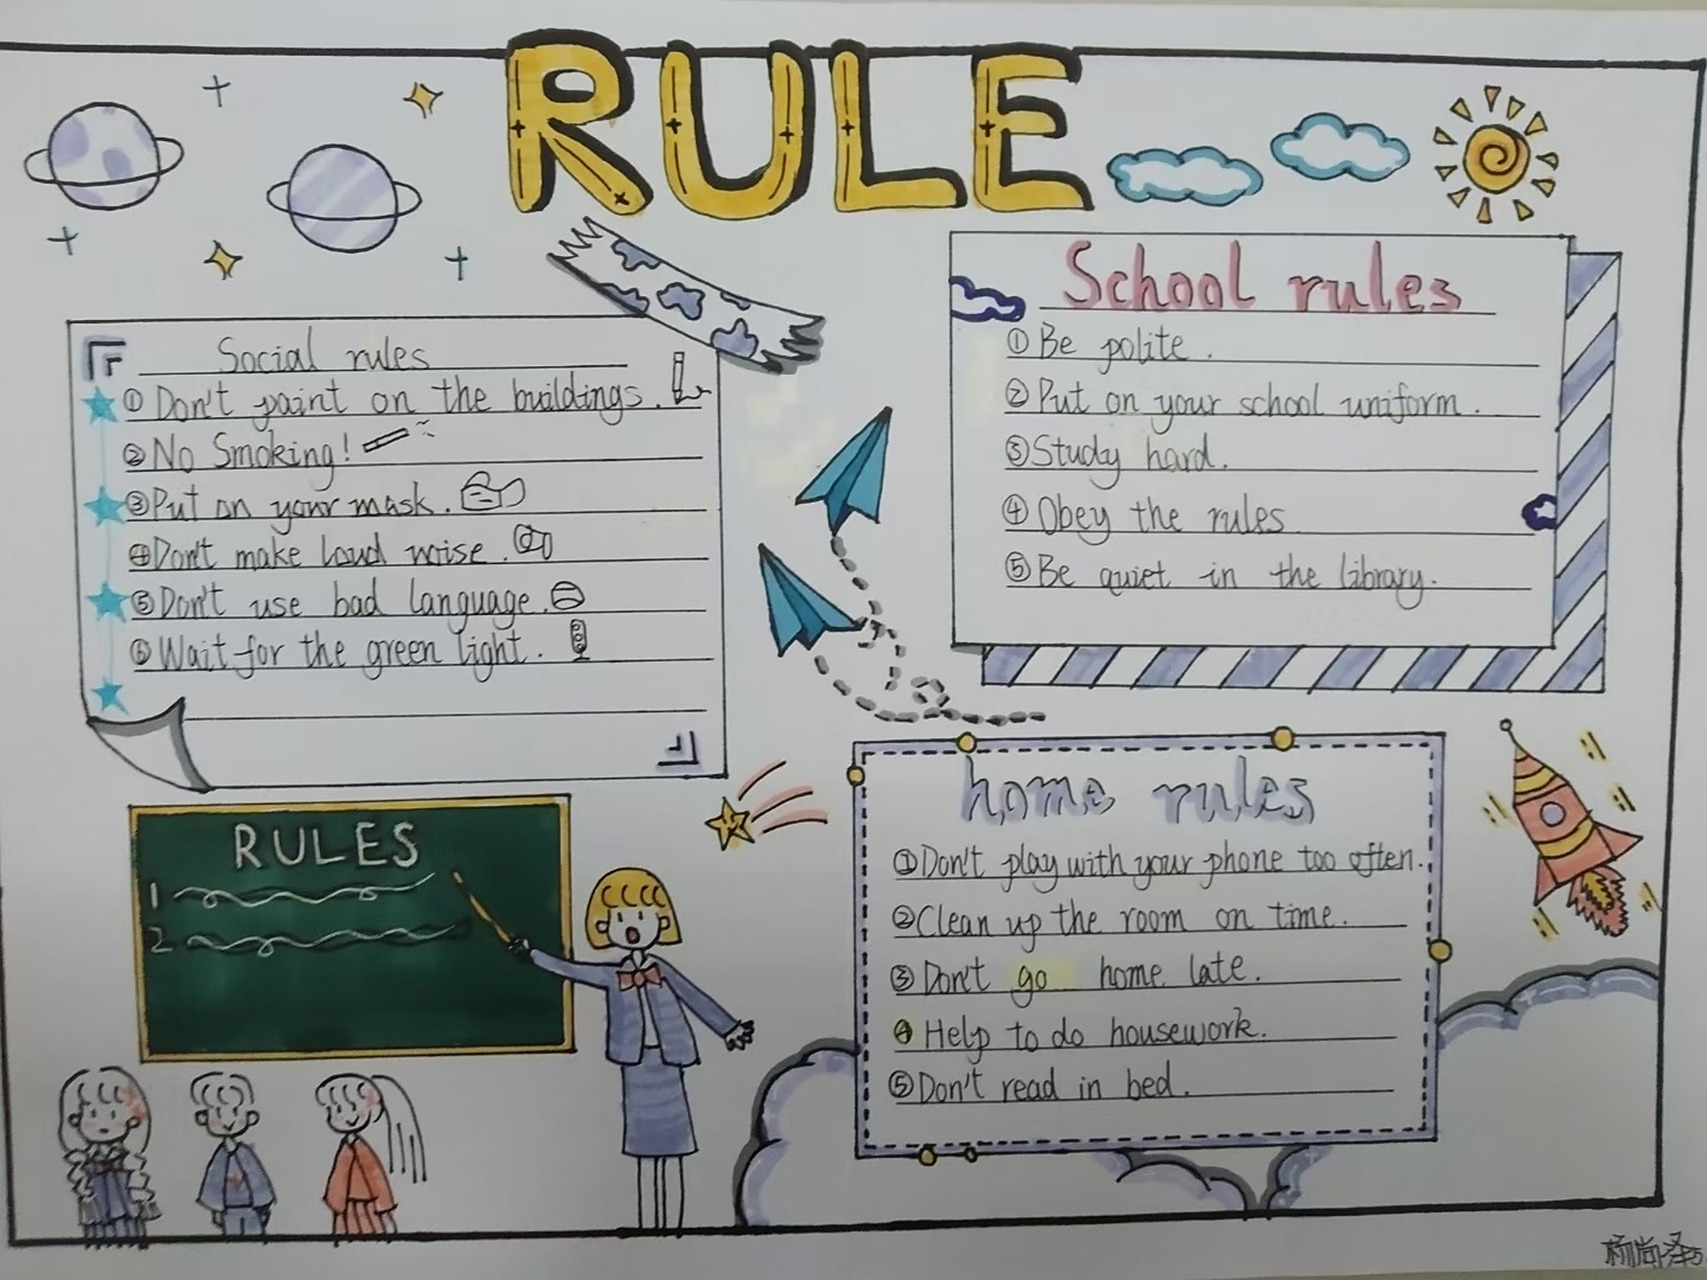 RULE
Social rules
①Don't paint on the buildings.
②No Smoking!
③Put on your mask.
④Don't make loud noise.
⑤Don't use bad language.
⑥Wait for the green light.
School rules
①Be polite.
②Put on your school uniform.
③Study hard.
④Obey the rules
⑤Be quiet in the library.
RULES
1
2
home rules
①Don't play with your phone too often.
②Clean up the room on time.
③Don't go home late.
④Help to do housework.
⑤Don't read in bed.
杨尚泽